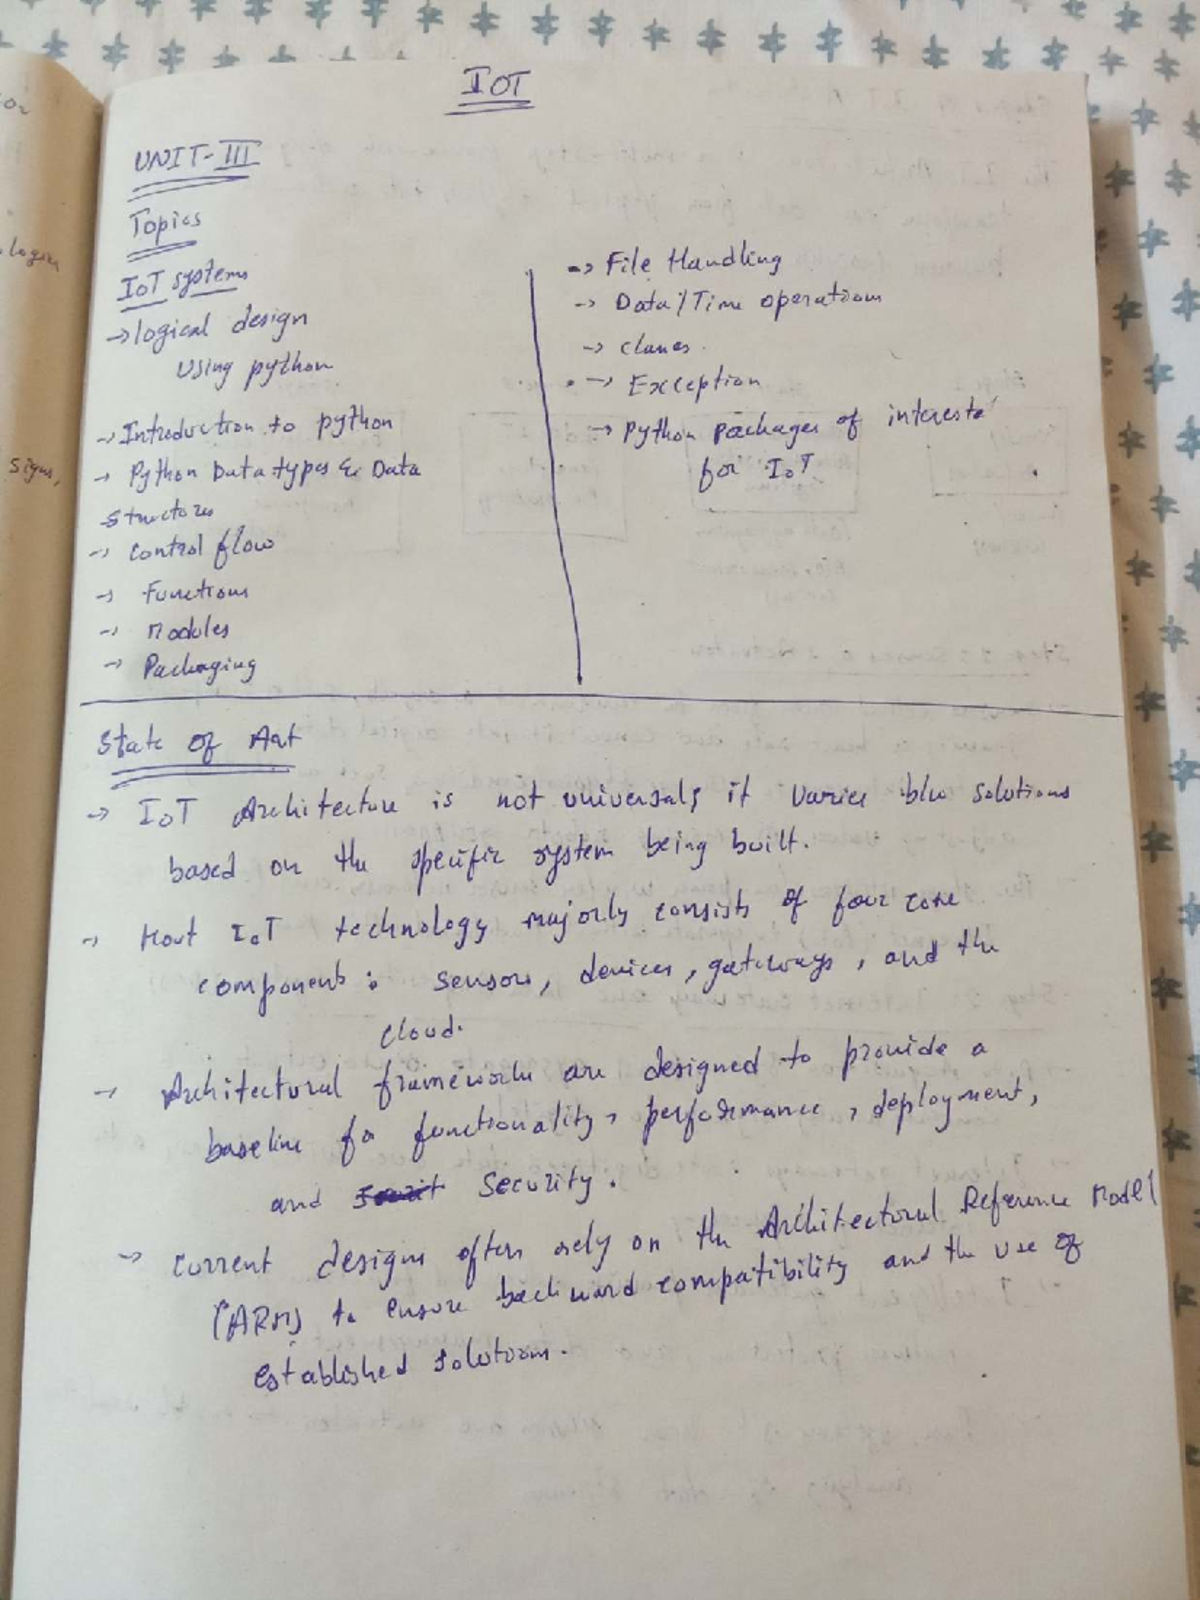 IOT
UNIT-III
Topics
IoT systems
→ logical design
using python
→ Introduction to python
→ Python Data types & Data
structures
→ control flow
→ Functions
→ Modules
→ Packaging
→ File Handling
→ Data/Time operations
→ classes
→ Exception
→ Python packages of interest
for IoT
State of Art
→ IoT Architecture is not universal; it varies b/w solutions
based on the specific system being built.
→ Most IoT technology majorly consists of four core
components: sensors, devices, gateways, and the
cloud.
→ Architectural frameworks are designed to provide a
baseline for functionality, performance, deployment,
and security.
→ current designs often rely on the Architectural Reference Model
(ARM) to ensure backward compatibility and the use of
established solutions.
or
logies
signs,